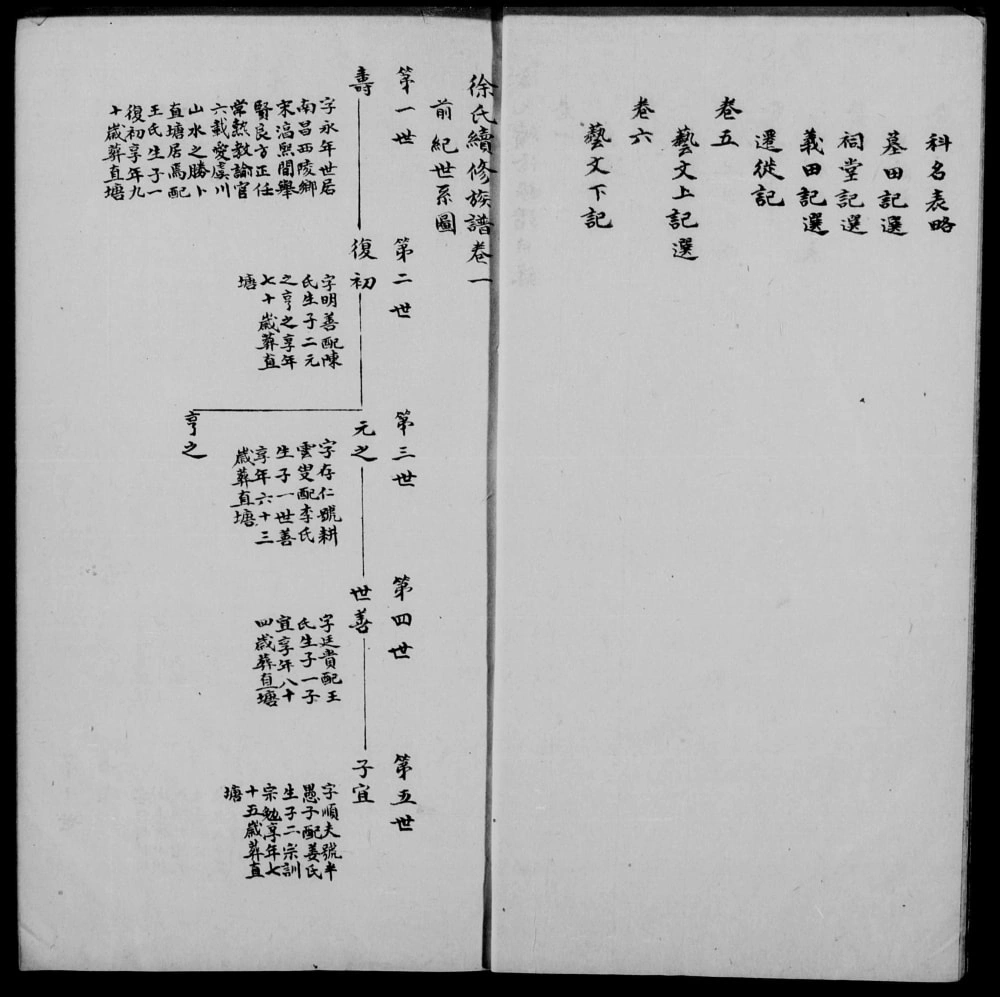 科名表略
墓田記選
祠堂記選
義田記選
遷徙記
卷五
藝文上記選
卷六
藝文下記
徐氏續修族譜卷一
前紀世系圖
第一世
壽
字永年世居
南昌西陵鄉
宋淳熙間舉
賢良方正任
常熟教諭官
六載愛虞川
山水之勝卜
直塘居焉配
王氏生子一
復初享年九
十歲葬直塘
第二世
復初
字明善配陳
氏生子二元
之亨之享年
七十歲葬直
塘
第三世
元之
字存仁號耕
雲叟配李氏
生子一世善
享年六十三
歲葬直塘
亨之
第四世
世善
字廷貴配王
氏生子一子
宜享年八十
四歲葬直塘
第五世
子宜
字順夫號半
愚子配姜氏
生子二宗訓
宗勉享年七
十五歲葬直
塘